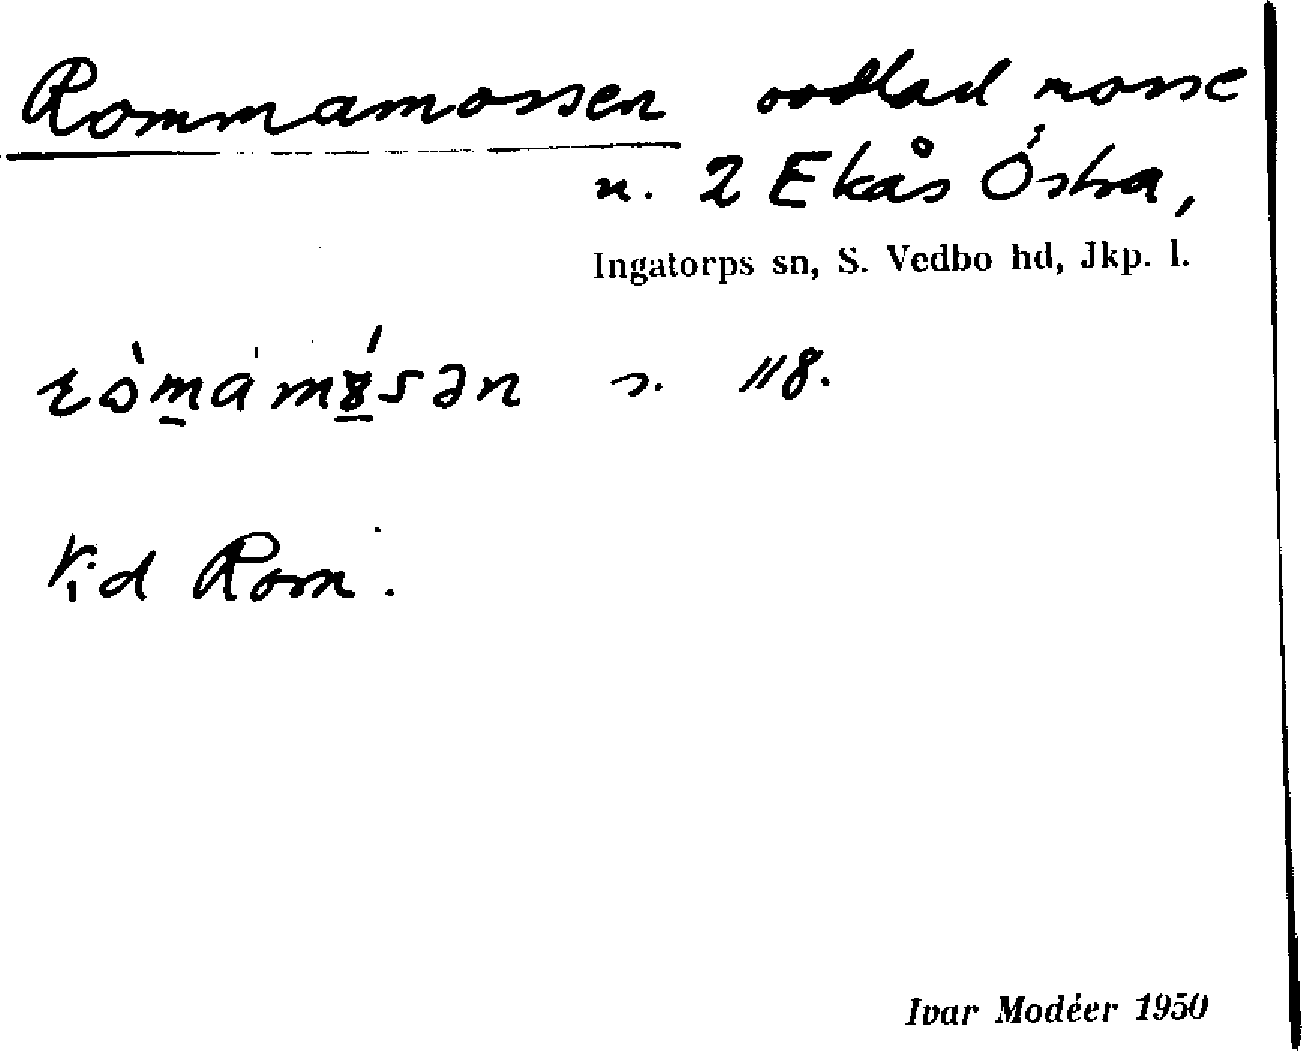 Rommamossen oodlad mosse
u. 2 Ekås Östra,
Ingatorps sn, S. Vedbo hd, Jkp. l.
ròmámɤ́sən s. 118.
Vid Rom.
Ivar Modéer 1950